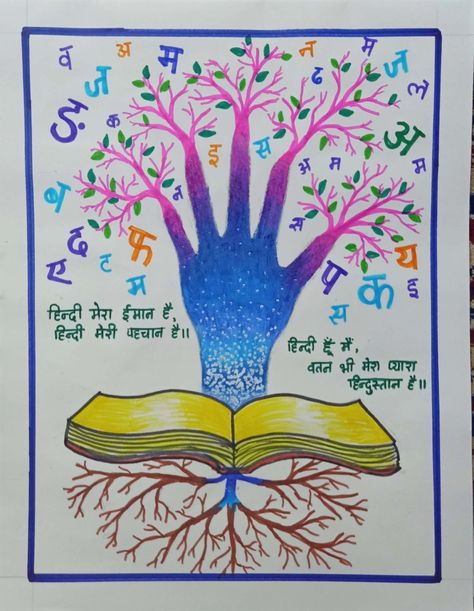 व अ म न म
ज ढ ज
ङ क इ स अ
अ म म
न स
ढ फ य
ए ट प
म स क इ
हिन्दी मेरा ईमान है,
हिन्दी मेरी पहचान है॥
हिन्दी हूँ मैं,
वतन भी मेरा प्यारा
हिन्दुस्तान है॥